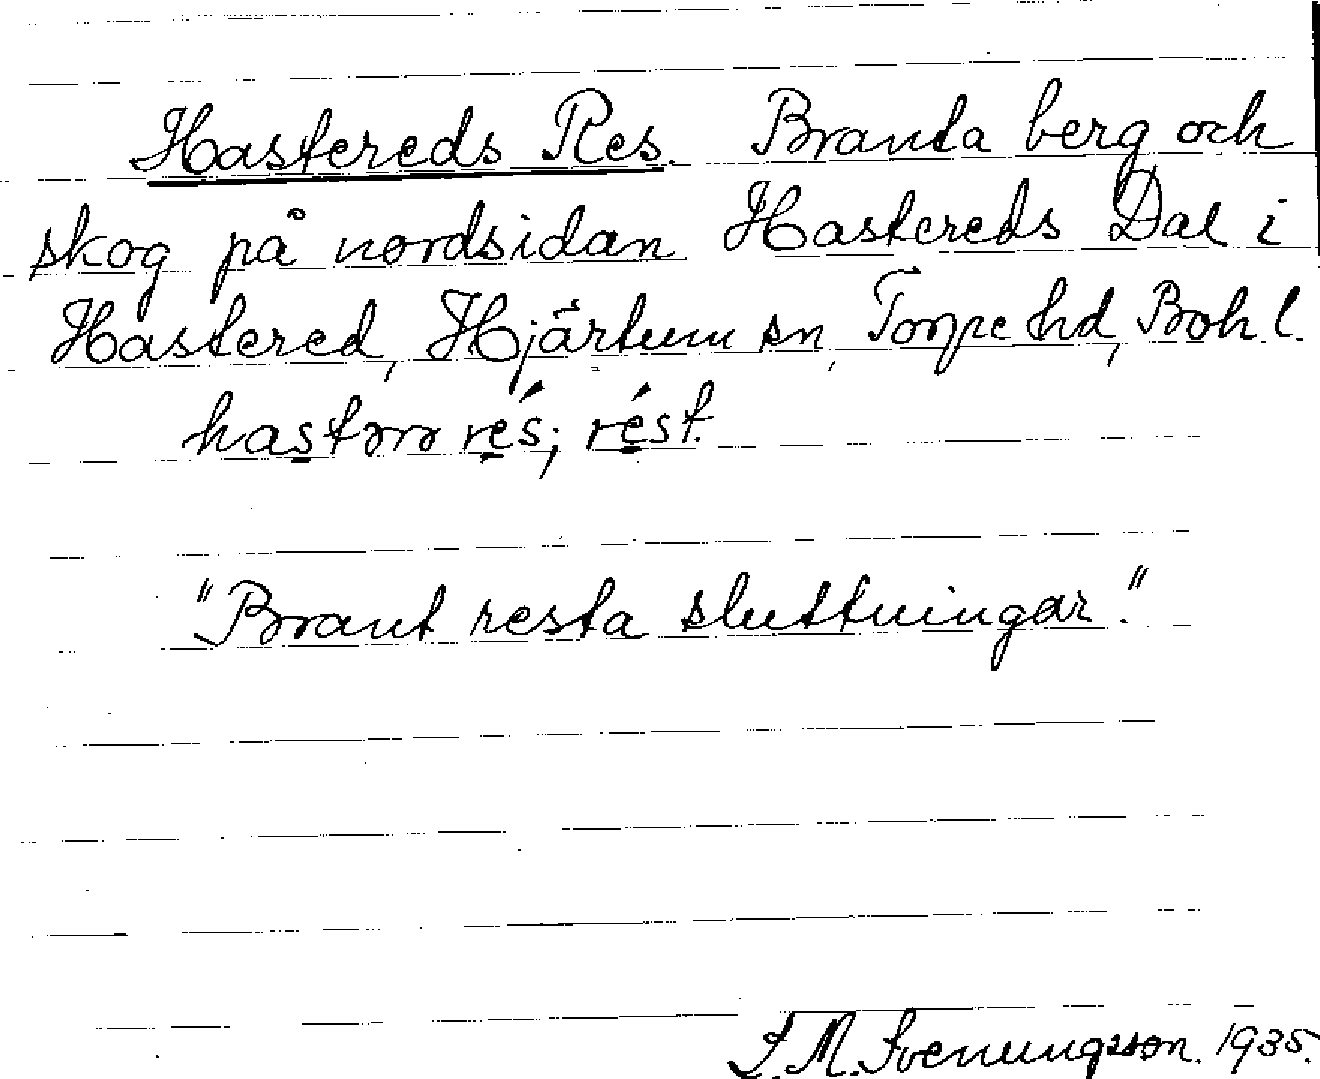 Hastereds Res. Branta berg och
skog på nordsidan Hastereds Dal i
Hastered, Hjärtum sn, Torpe hd, Bohl.
hastoro rés; rést.
"Brant resta sluttningar."
S. M. Svenungsson. 1935.